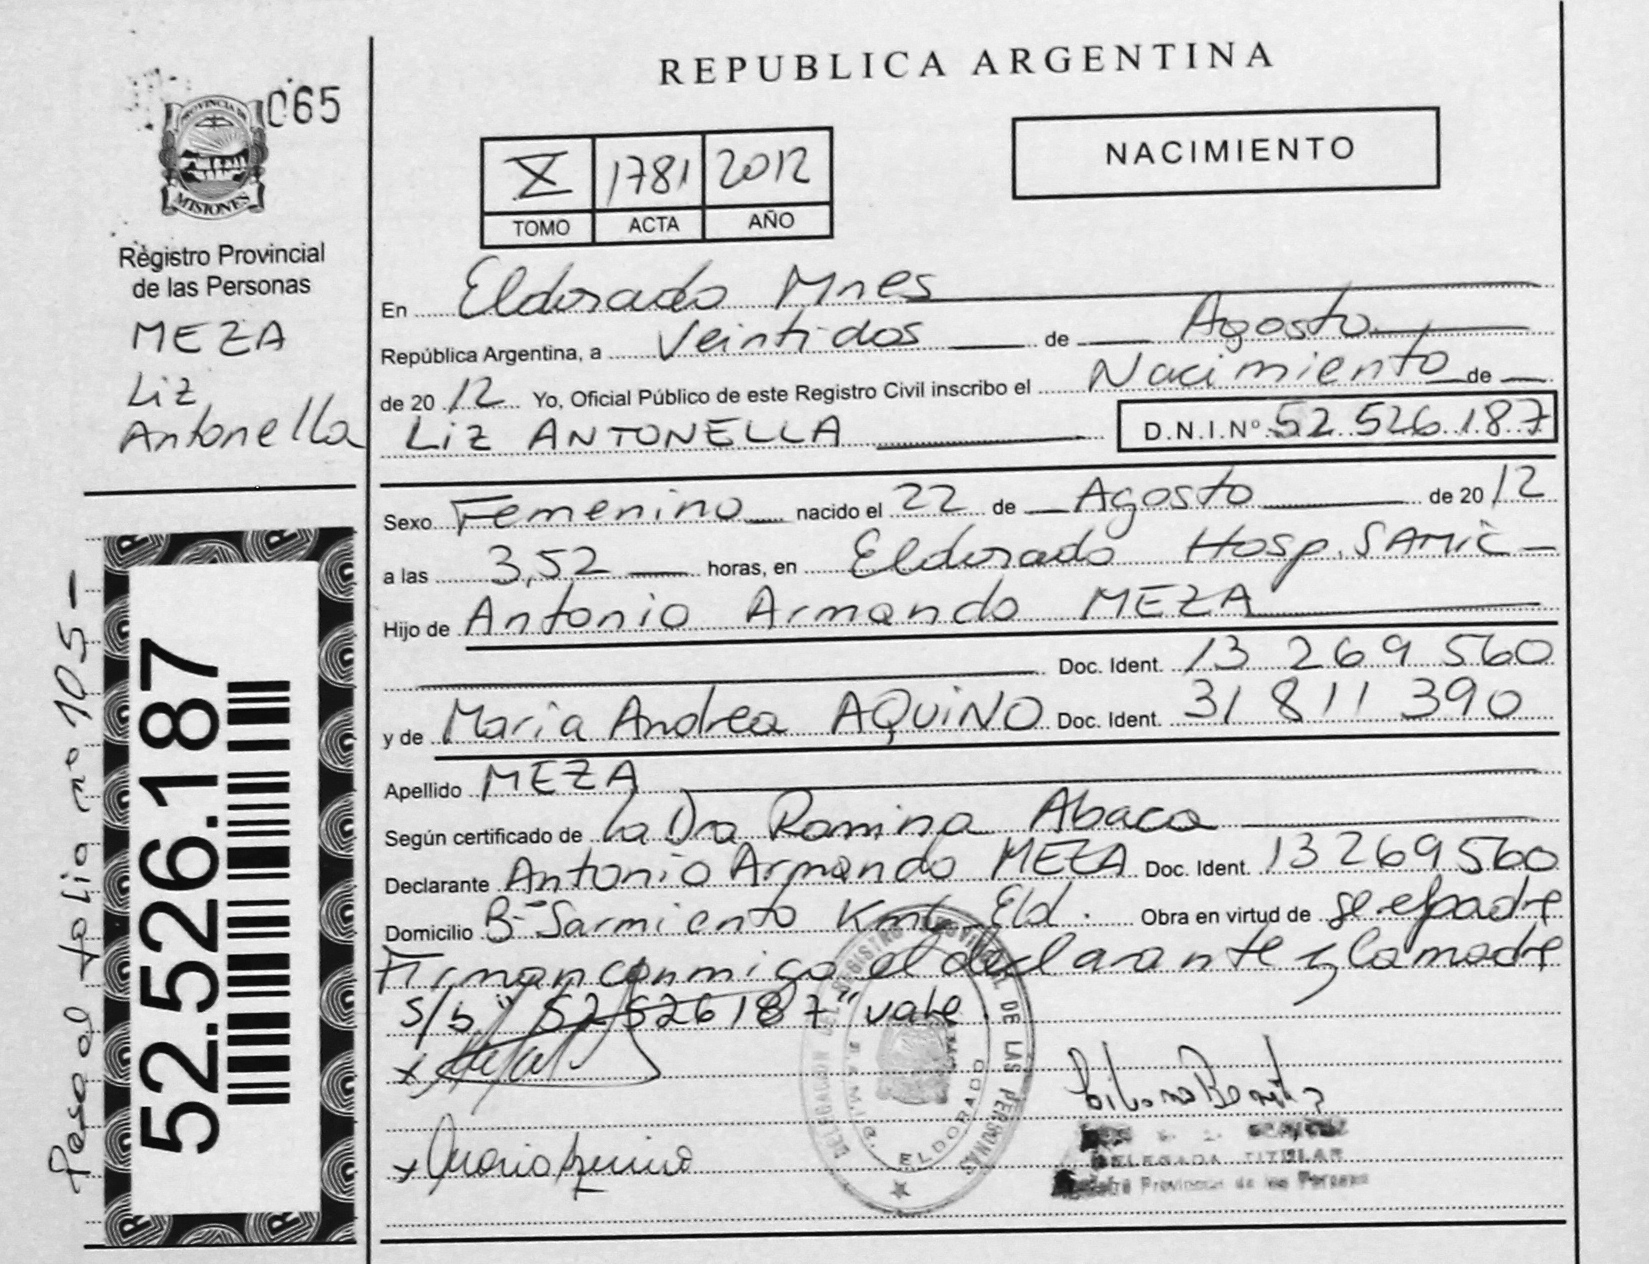 065
PROVINCIA DE
MISIONES
Registro Provincial
de las Personas
MEZA
Liz
Antonella
52.526.187
Pasa al folio nº 105 -
REPUBLICA ARGENTINA
NACIMIENTO
X 1781 2012
TOMO ACTA AÑO
En Eldorado Mnes
República Argentina, a Veintidos de Agosto
de 20 12 Yo, Oficial Público de este Registro Civil inscribo el Nacimiento de
Liz ANTONELLA D.N.I.Nº 52.526.187
Sexo Femenino nacido el 22 de Agosto de 20 12
a las 3,52 horas, en Eldorado Hosp. SAMIC -
Hijo de Antonio Armando MEZA
Doc. Ident. 13 269 560
y de Maria Andrea AQUINO Doc. Ident. 31 811 390
Apellido MEZA
Según certificado de la Dra Romina Abaca
Declarante Antonio Armando MEZA Doc. Ident. 13269560
Domicilio Bº Sarmiento Km Eld. Obra en virtud de ser el padre
Firman conmigo el declarante y la madre
s/b "52526187" vale.
DELEGACION DEL REGISTRO PROVINCIAL DE LAS PERSONAS
S.A.M.I.C. ELDORADO
DELEGADA TITULAR
Registro Provincial de las Personas